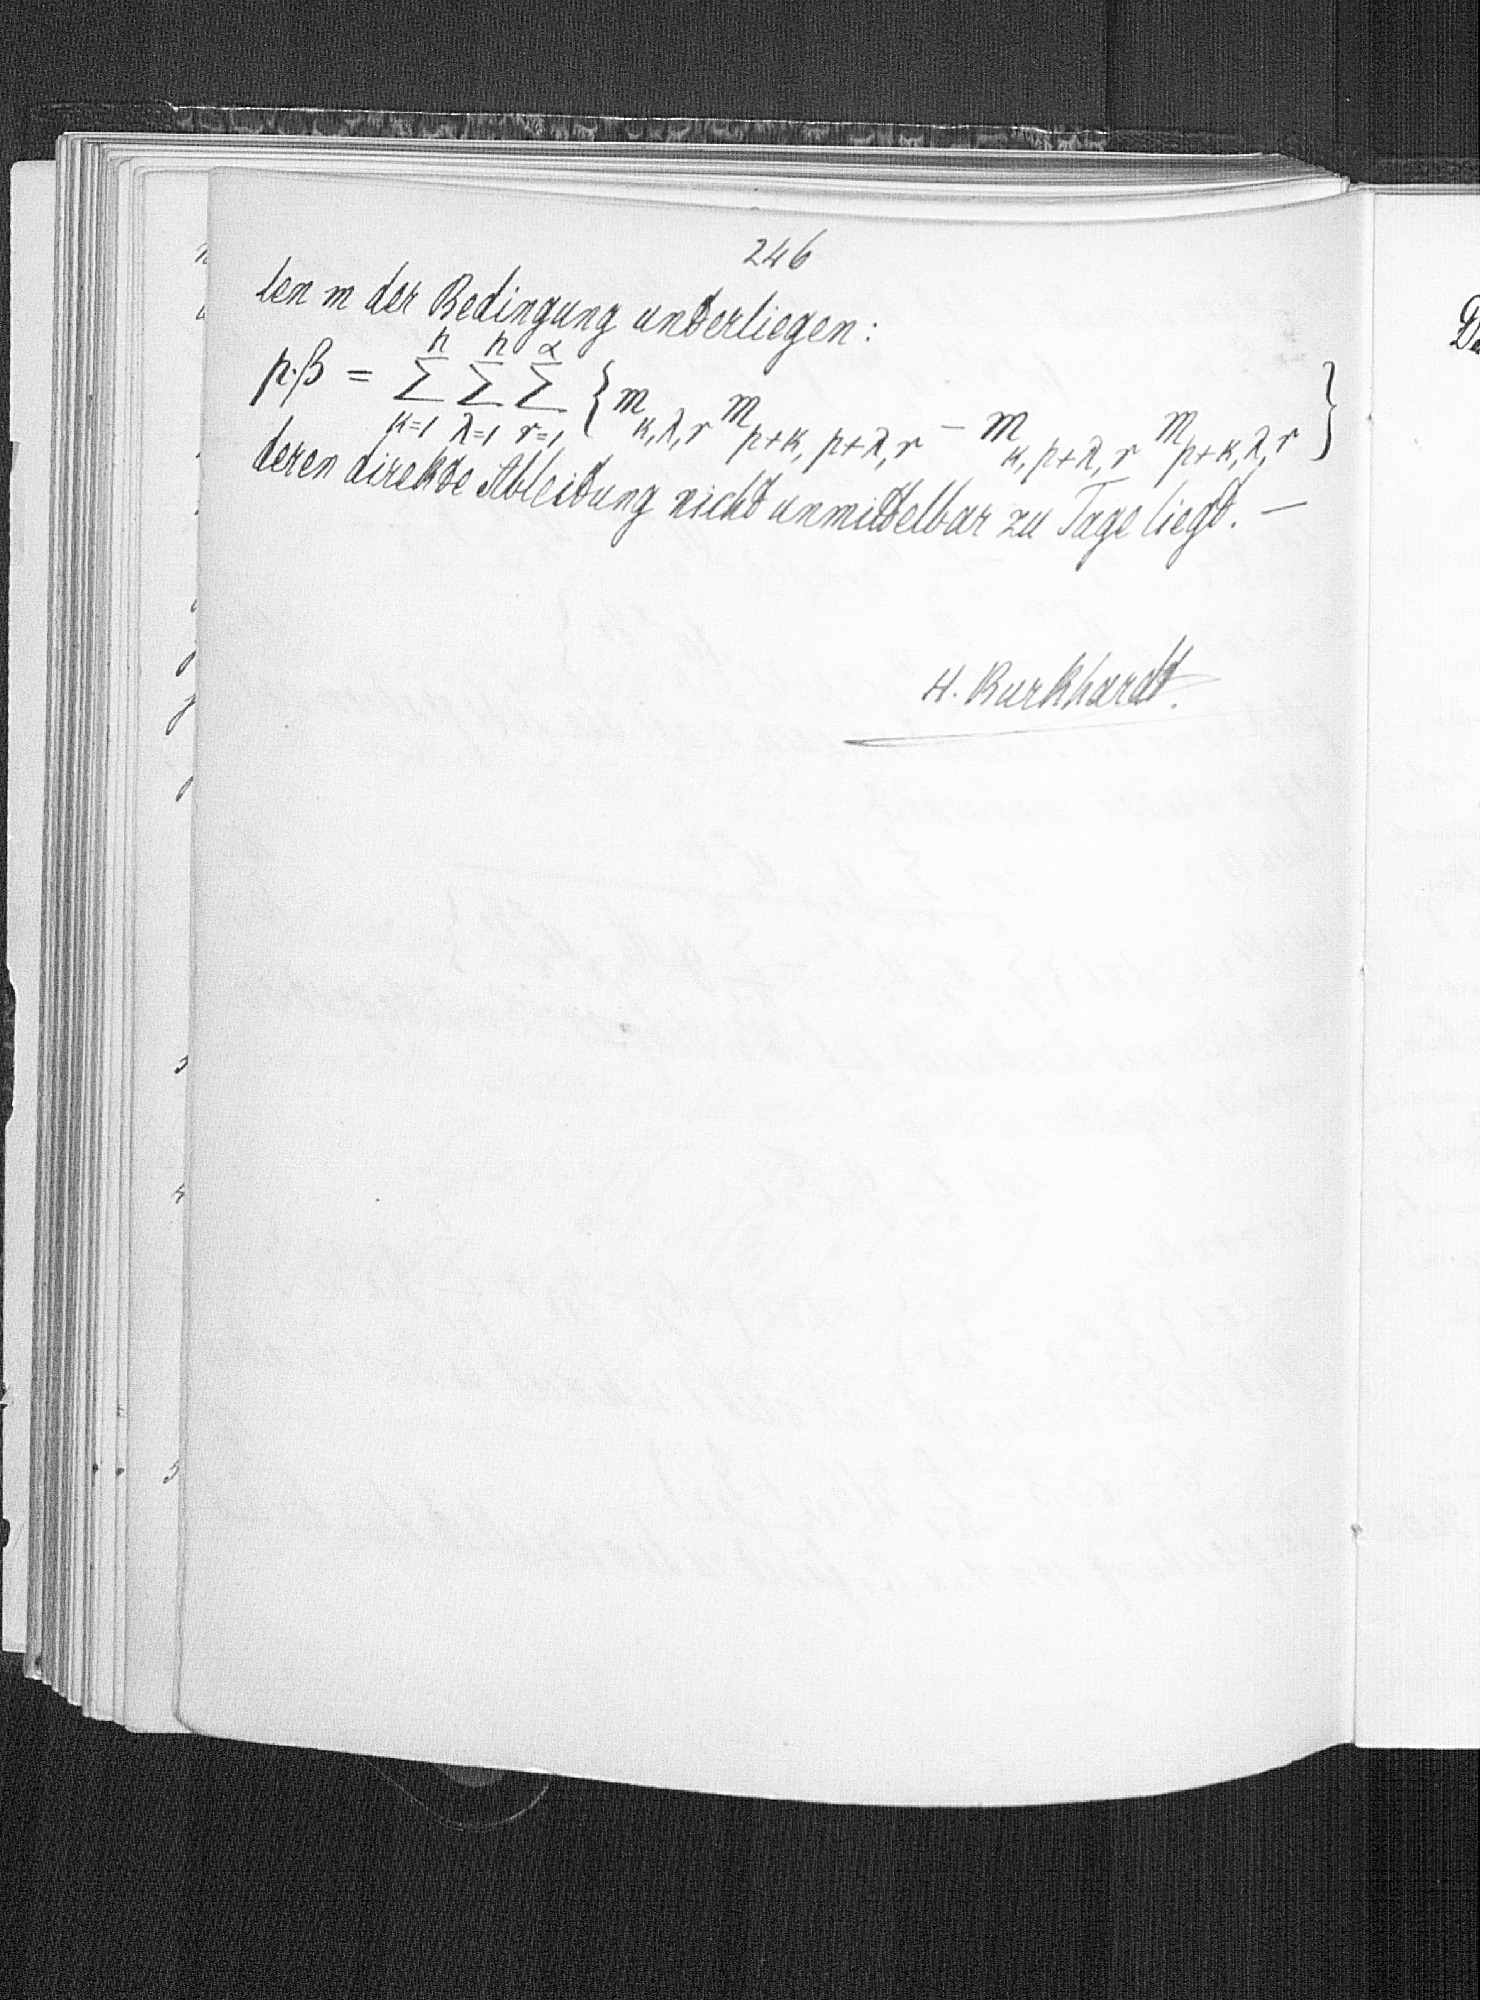 246
len m der Bedingung unterliegen:
p·β = ∑_{κ=1}^{p} ∑_{λ=1}^{p} ∑_{r=1}^{α} { m_{κ,λ,r} m_{p+κ, p+λ, r} − m_{κ, p+λ, r} m_{p+κ, λ, r} }
deren direkte Ableitung nicht unmittelbar zu Tage liegt. —
H. Burkhardt.